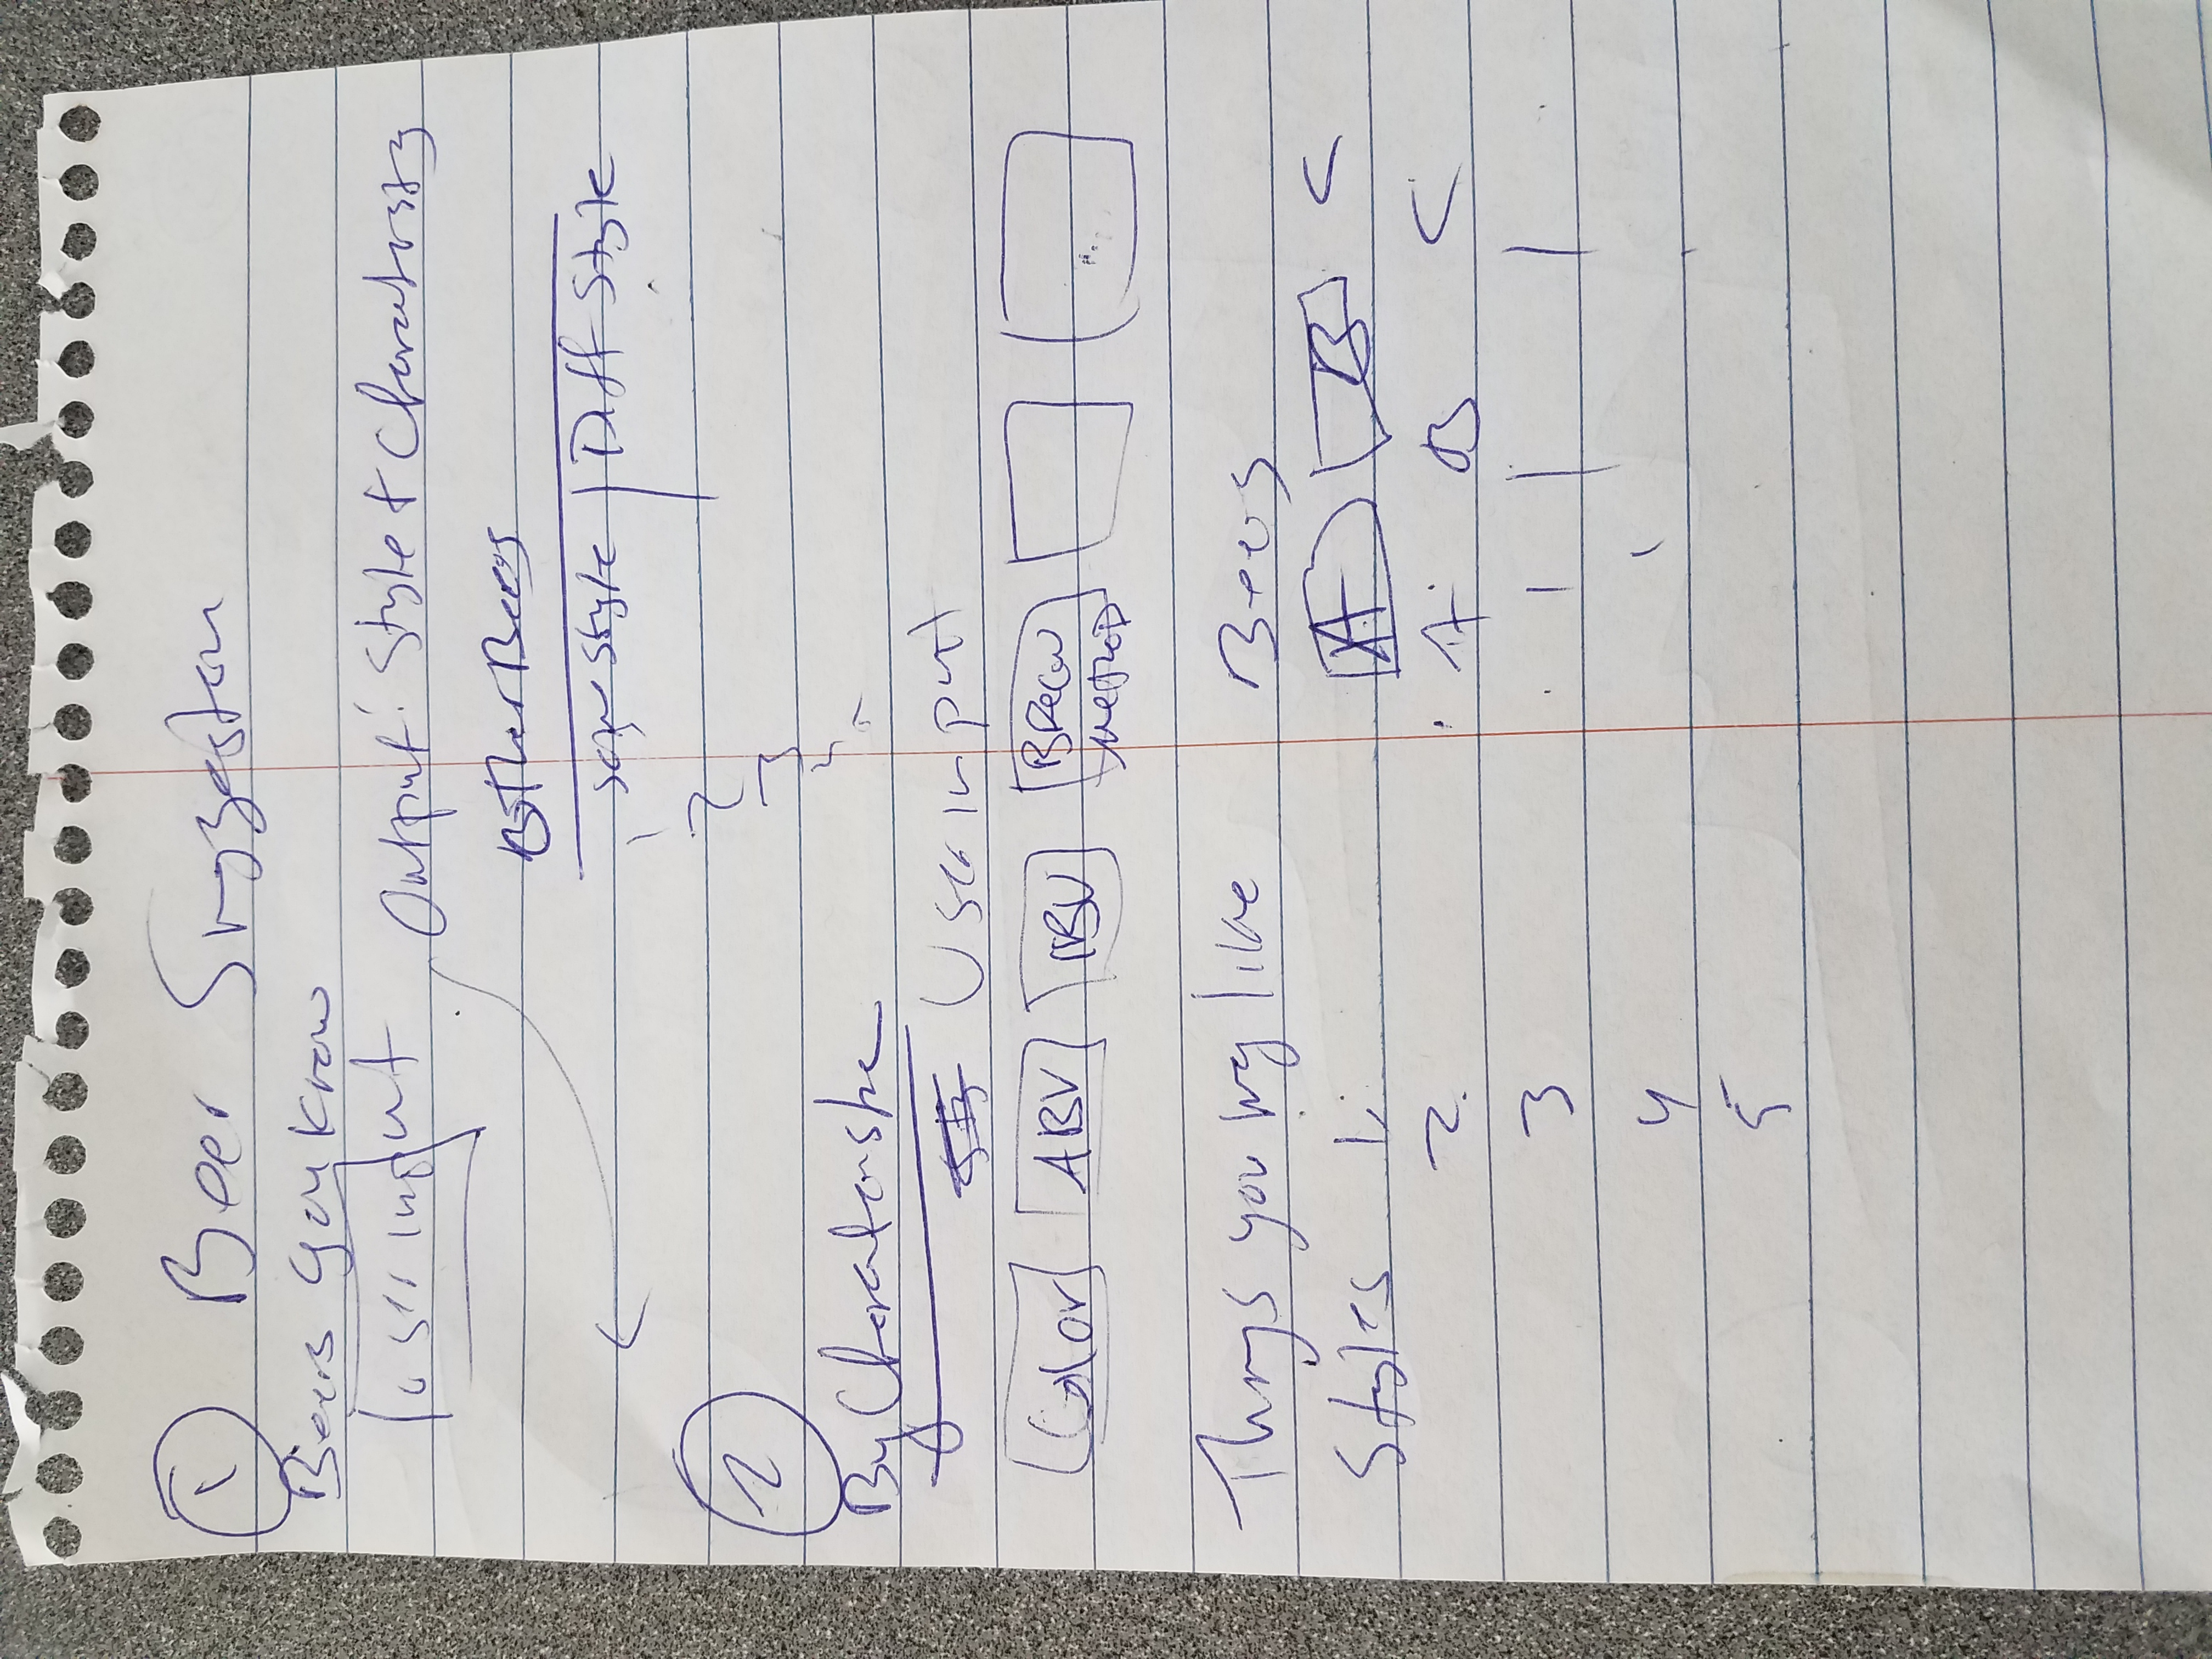 1 Beer Suggestion
Beers you know
user input Output: Style & Characteristics
Other Beers
same style | Diff Style
1
2
3
4
5
2
By Characteristic
User input
Color ABV IBU Brew method
Things you may like Beers
Styles 1. A B C
2. A B C
3 1
4
5